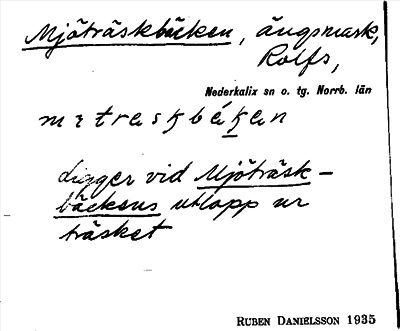 Mjöträskbäcken, ängsmark,
Rolfs,
Nederkalix sn o. tg. Norrb. län
ligger vid Mjöträsk-
bäckens utlopp ur
träsket
RUBEN DANIELSSON 1935